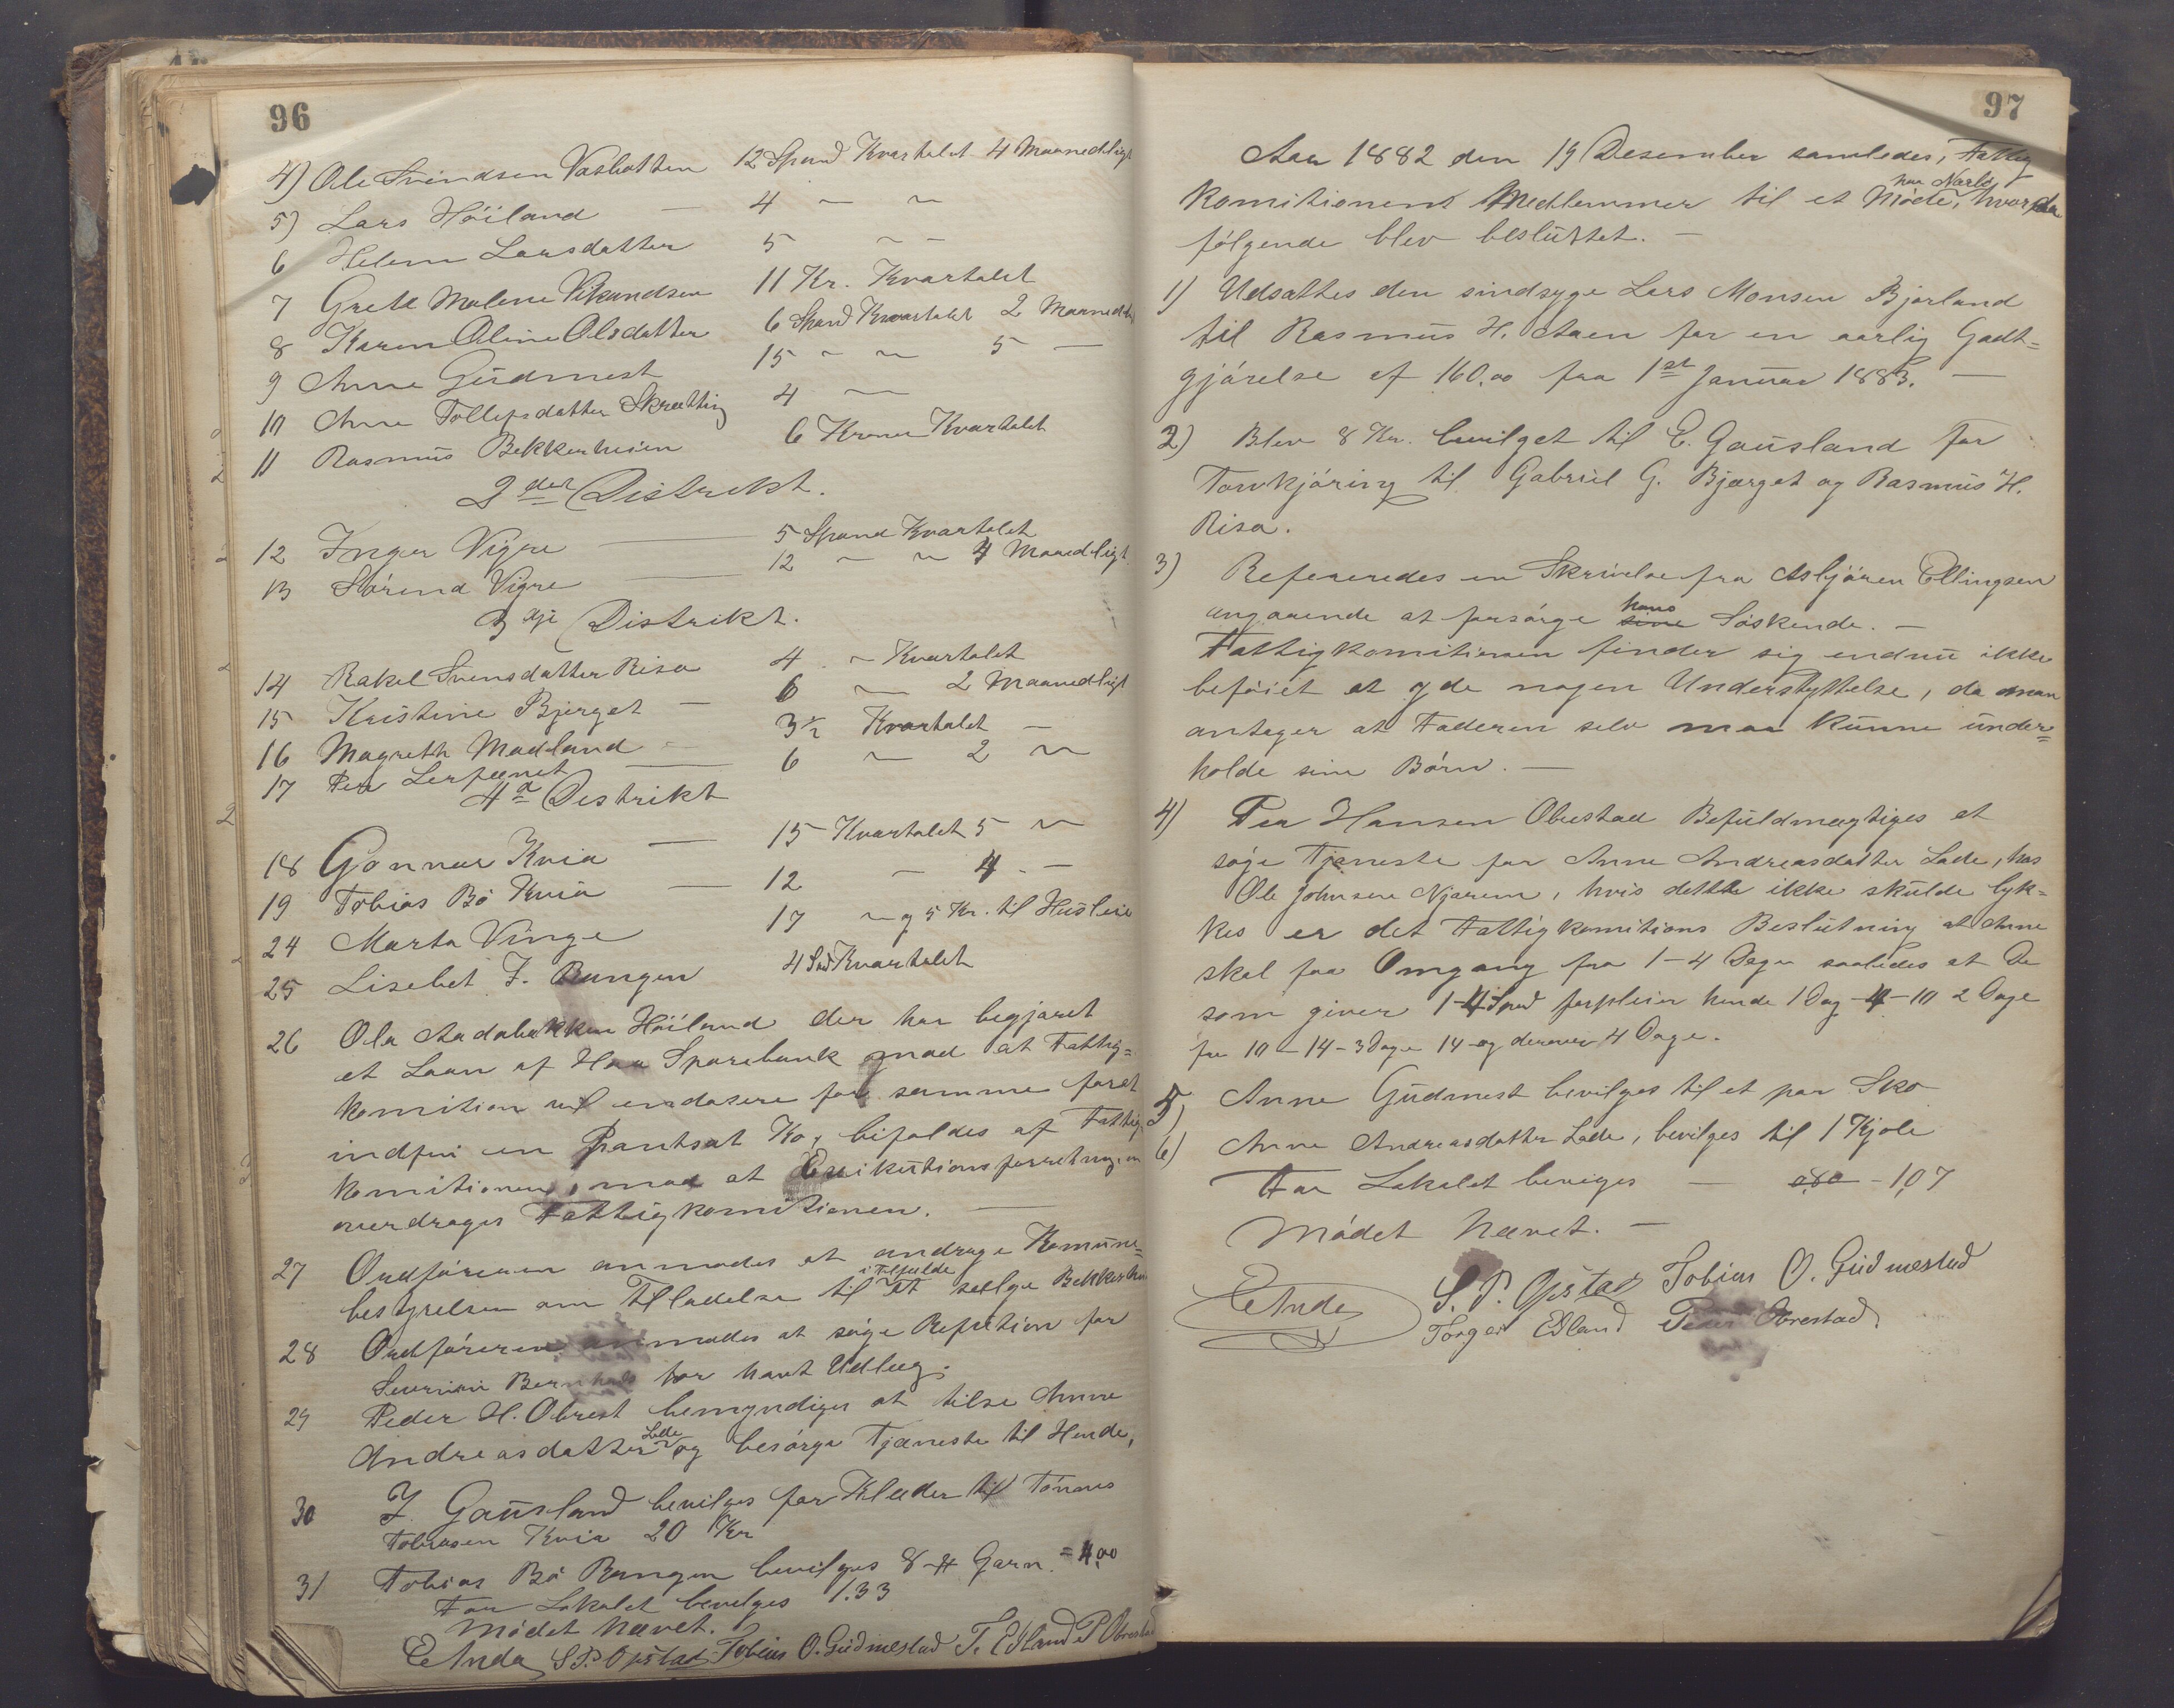 96
4) Ole Svendsen Vasbotten 12 Spand Kvartalet 4 Maanedligt
5) Lars Höiland — 4 ~ ~
6 Helene Larsdatter 5 ~ ~
7 Grete Malene Vikandsen 11 Kr. Kvartalet
8 Karen Oline Olsdatter 6 Spand Kvartalet 2 Maanedligt
9 Anne Gudmest 15 ~ ~ 5 —
10 Anne Tollefsdatter Skrætting 4 ~
11 Rasmus Bekkerheien 6 Kroner Kvartalet
2det Distrikt.
12 Inger Vigre — 5 Spand Kvartalet
13 Sörine Vigre — 12 ~ ~ 4 Maanedligt
3dje Distrikt.
14 Rakel Svensdatter Risa 4 ~ Kvartalet
15 Kristine Bjerget — 6 ~ 2 Maanedligt
16 Magreth Madland — 3½ Kvartalet —
17 Per Lerpeenet — 6 ~ 2 ~
4de Distrikt
18 Gonnar Kvia — 15 Kvartalet 5 ~
19 Tobias Bö Kvia — 12 — 4 —
24 Marta Vinge 17 ~ og 5 Kr. til Husleie
25 Lisebet J. Rangen 4 Spd Kvartalet
26 Ola Aadabakken Höiland der har begjæret
et Laan af Haa Sparebank mod at Fattig=
komition vil endosere for samme forat
indfri en Pantsat Ko, bifaldes af Fattig
komitionen, mod at Exikutionsforretningen
overdrages Fattigkomitionen. —
27 Ordföreren anmodes at andrage Komune=
bestyrelsen om Tilladelse til i Tilfælde at sælge
28 Ordföreren anmodes at söge Refution for
for havt Udlæg.
29 Peder H. Obrest bemyndiges at tilse Anne
Andreasdatter Lode og besörge Tjæneste til Hende,
30 J. Gausland bevilges for Klæder til Tönnes
Tobiasen Kvia 20 Kr
31 Tobias Bö Rangen bevilges 8 ℔ Garn = 4,00
For Lokalet bevelges 1.33
Mödet hævet.
E Anda S. P. Opstad Tobias O. Gudmestad T. Edland P Obrestad
97
Aar 1882 den 19 Desember samledes, Fattig
Komitionens Medlemmer til et Möde, paa Nærbö hvor da
fölgende blev besluttet. —
1) Udsattes den sindsyge Lars Monsen Bjorland
til Rasmus H. Aaen for en aarlig Godt=
gjörelse af 160,00 fra 1st Januar 1883. —
2) Blev 8 Kr. bevilget til E. Gausland for
Torvkjöring til Gabriel G. Bjærget og Rasmus H.
Risa.
3) Refereredes en Skrivelse fra Asbjören Ellingsen
angaaende at forsörge sine hans Söskende. —
Fattigkomitionen finder sig endnu ikke
beföiet at yde nogen Understyttelse, da man
antager at Faderen selv maa kunne under=
holde sine Börn. —
4) Per Hansen Obrestad Befuldmægtiges at
söge Tjæneste for Anne Andreasdatter Lode, hos
Ole Johnsen Njærem, hvis dette ikke skulde lyk=
kes er det Fattigkomitions Beslutning at Anne
skal faa Omgang fra 1-4 Dage saaledes at De
som giver 1-4 Spd forpleier hende 1 Dag - 4-10 2 Dage
fra 10-14-3 Dage 14 og derover 4 Dage.
5) Anne Gudmest bevilges til et par Sko
6) Anne Andreasdatter Lode, bevilges til 1 Kjole
For Lokalet beviges — 0,80 - 1,07
Mödet hævet. —
E Anda S. P. Opstad Tobias O. Gudmestad
Torger Edland Peder Obrestad